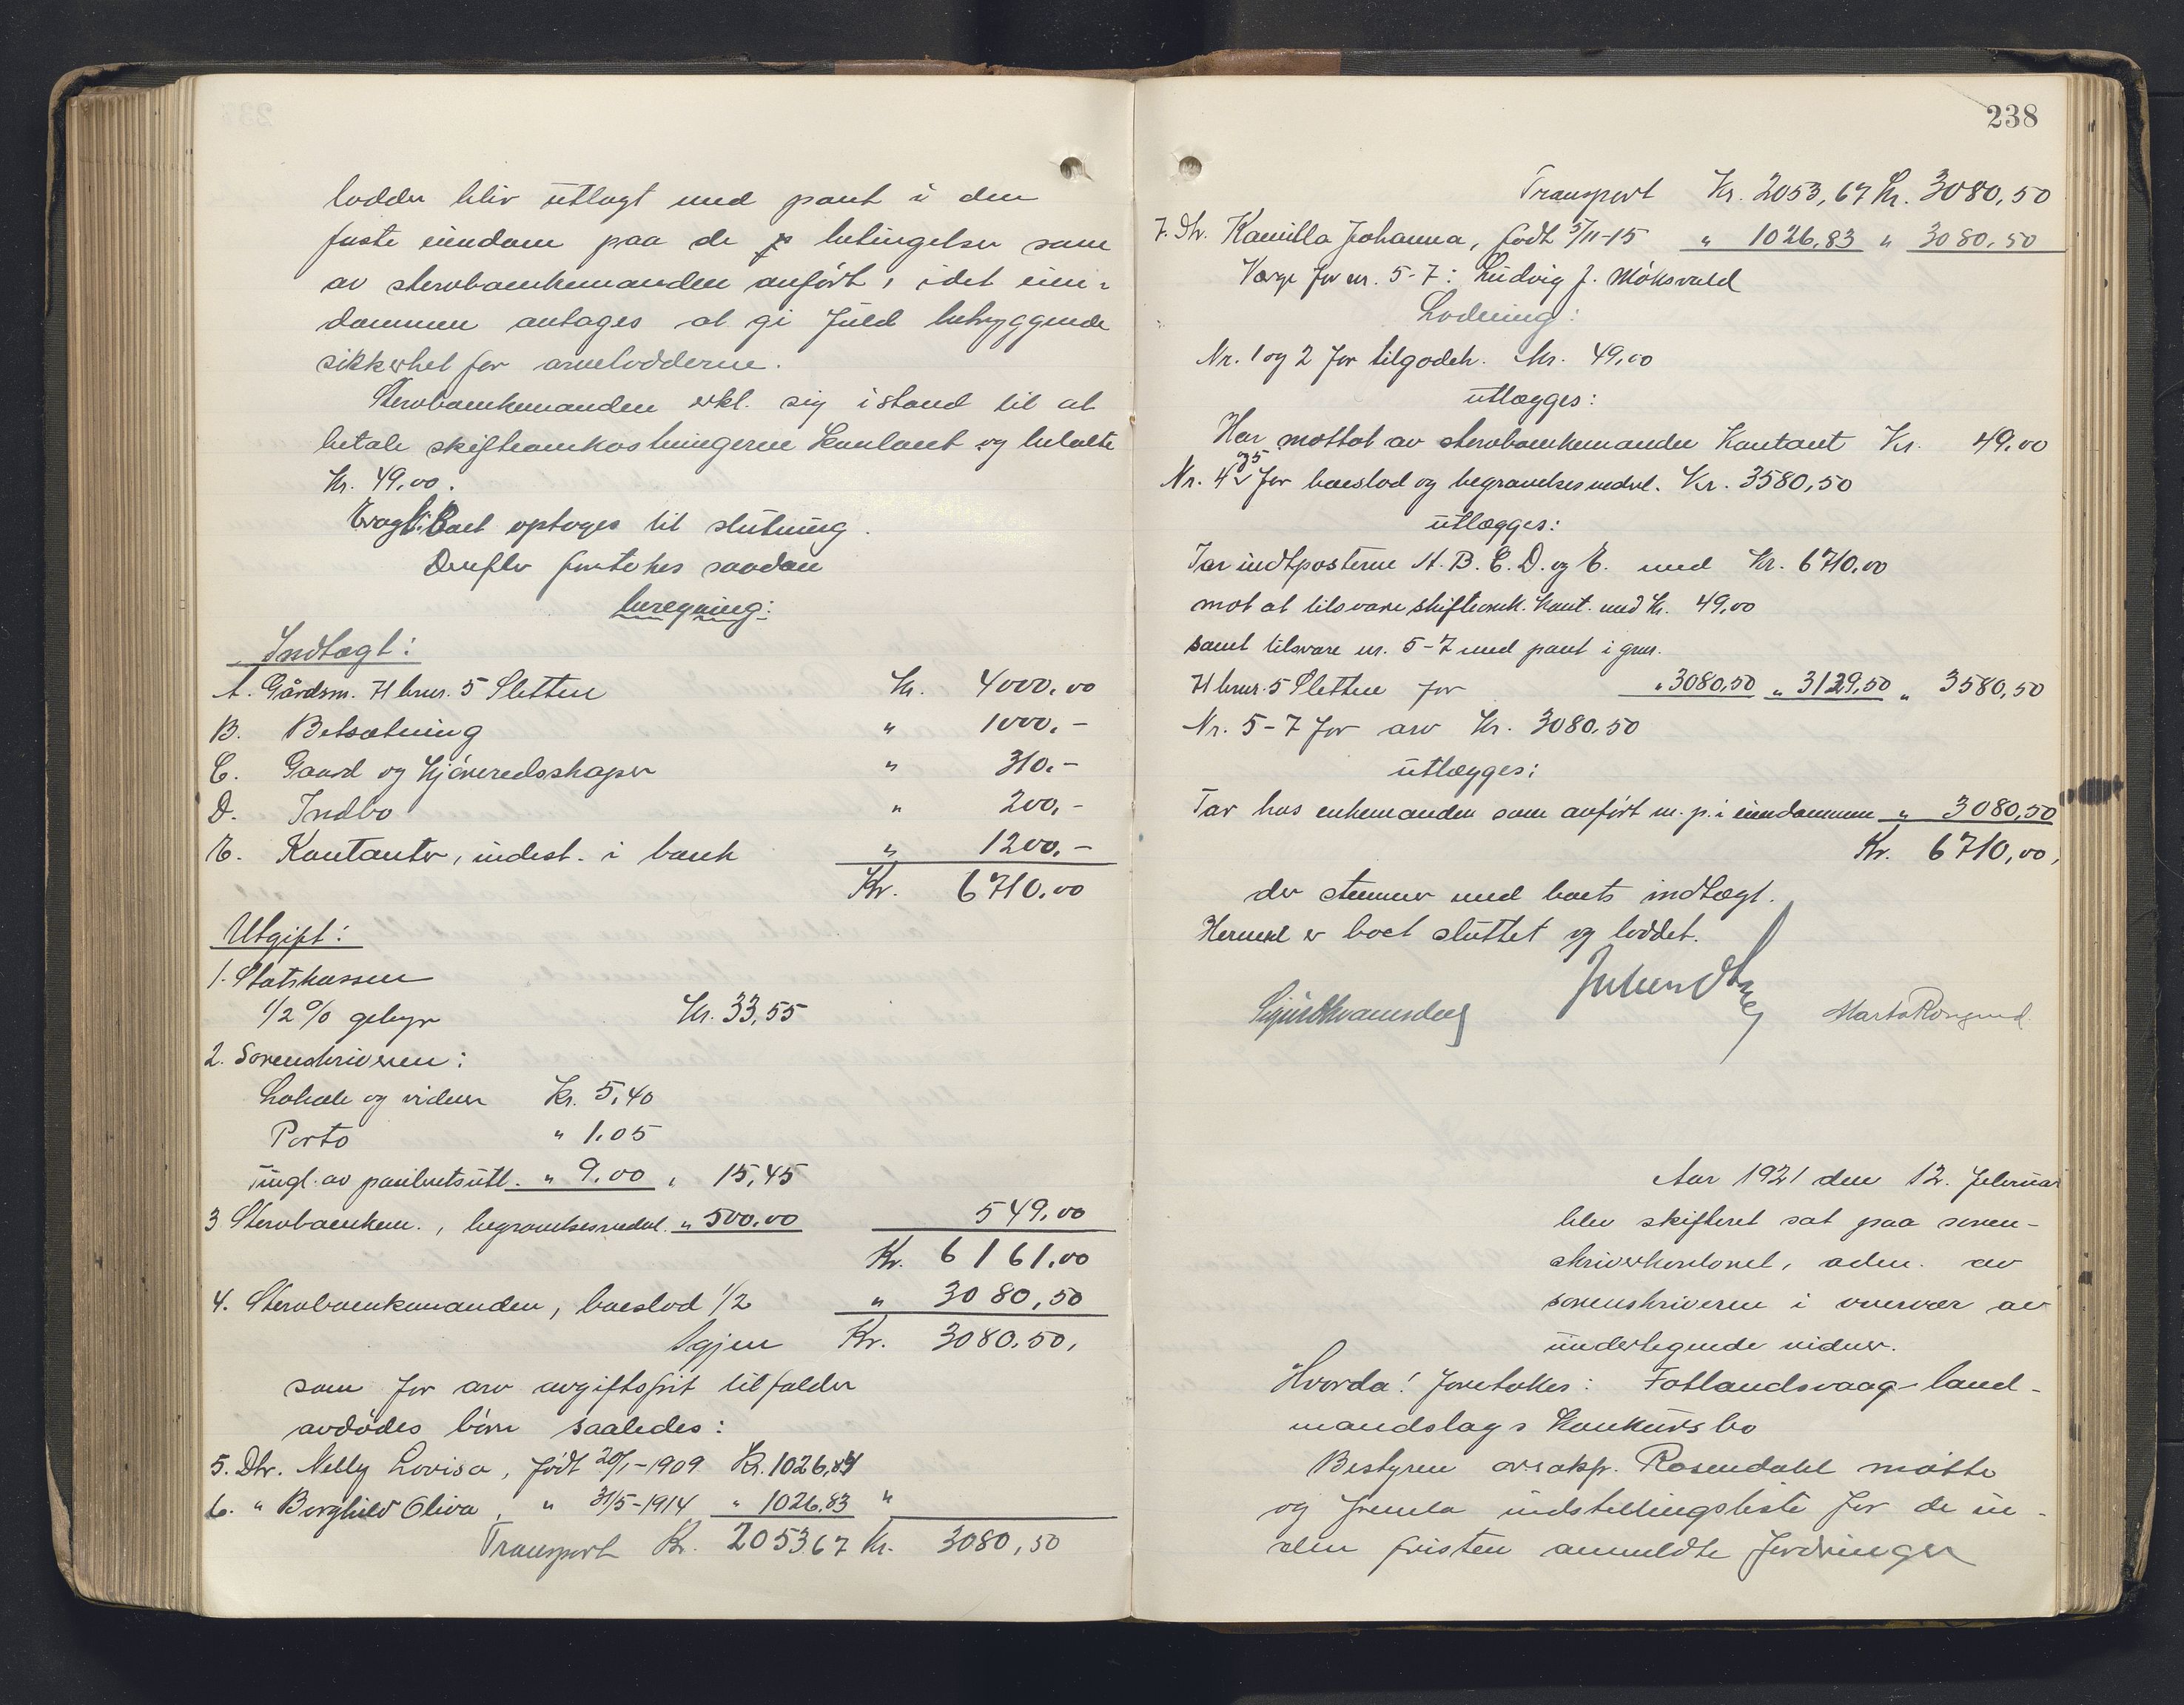 lodder bliv utlagt med pant i den
faste eiendom paa de betingelser som
av stervboenkemanden anført, idet eien-
dommen antages at gi fuld betryggende
sikkerhet for arvelodderne.
Stervboenkemanden erkl. sig istand til at
betale skifteomkostningerne kontant og betalte
Kr. 49,00.
Boet optoges til slutning.
Derefter foretokes saadan
beregning:
Indtægt:
A. Gårdsm. 71 brnr. 5 Sletten Kr. 4000,00
B. Besætning " 1000,-
C. Gaard og kjøreredskaper " 310,-
D. Indbo " 200,-
E. Kontanter, indest. i bank " 1200,-
Kr. 6710,00
Utgift:
1. Statskassen
1/2 % gebyr Kr. 33,55
2. Sorenskriveren:
Lokale og vidner Kr. 5,40
Porto " 1,05
Tingl. av panteutl. " 9,00 " 15,45
3 Stervboenkem., begravelsesvedel. " 500,00 549,00
Kr. 6161,00
4. Stervboenkemanden, boeslod 1/2 " 3080,50
Igjen Kr. 3080,50,
som for arv avgiftsfrit tilfalder
avdødes børn saaledes:
5. Dtr. Nelly Lovisa, født 20/1-1909 Kr. 1026,84
6. " Borghild Oliva, " 31/5-1914 " 1026,83 "
Transport Kr. 2053,67 Kr. 3080,50
238
Transport Kr. 2053,67 Kr. 3080,50
7. Dtr. Kamilla Johanna, født 5/11-15 " 1026,83 " 3080,50
Værge for nr. 5-7: Ludvig J.
Lodning:
Nr. 1 og 2 for tilgodeh. Kr. 49,00
utlægges:
Har mottat av stervboenkemanden kontant Kr. 49,00
Nr. 4 og 5 for boeslod og begravelsesvedel. Kr. 3580,50
utlægges:
Tar indtpostene A. B. C. D. og E. med Kr. 6710,00
mot at tilsvare skifteomk. kont. med Kr. 49,00
samt tilsvare nr. 5-7 med pant i gnr.
71 brnr. 5 Sletten for " 3080,50 " 3129,50 " 3580,50
Nr. 5-7 for arv Kr. 3080,50
utlægges:
Tar hos enkemanden som anført m. p. i eiendommen " 3080,50
Kr. 6710,00,
der stemmer med boets indtægt.
Hermed er boet sluttet og loddet.
Aar 1921 den 12. februar
blev skifteret sat paa soren-
skriverkontoret, adm. av
sorenskriveren i overvær av
undertegnede vidner.
Hvorda! foretokes: Fotlandsvaag land-
mandslags konkursbo
Bestyreren o.r.sakf. Rosendahl møtte
og fremla indstillingsliste for de in-
den fristen anmeldte fordringer